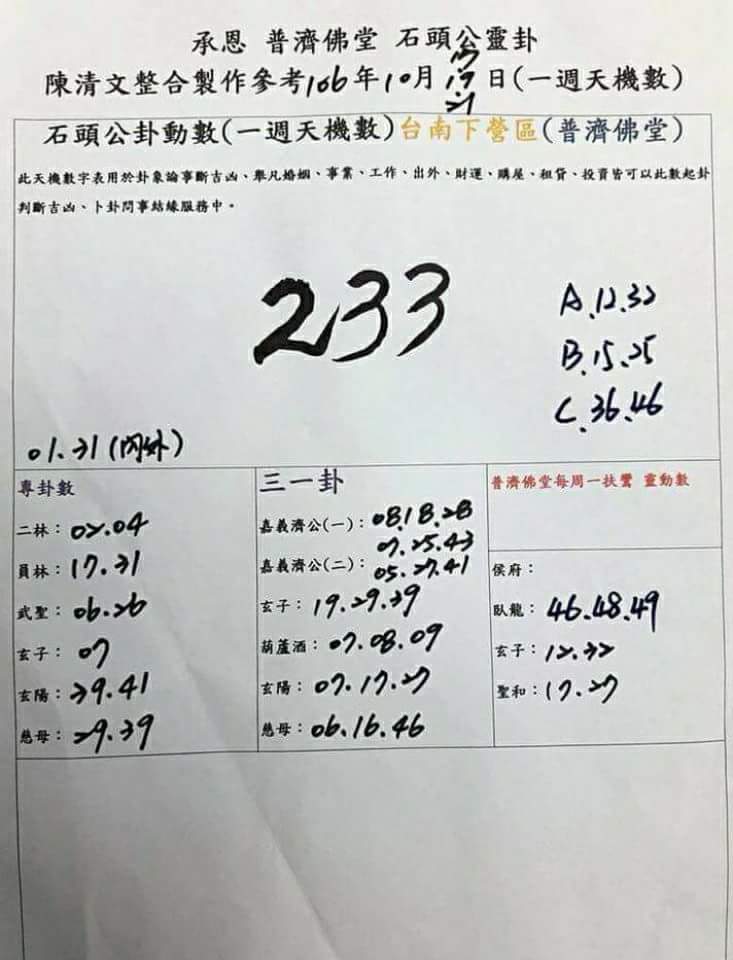 承恩 普濟佛堂 石頭公靈卦
陳清文整合製作參考106年10月17 19 21日(一週天機數)
石頭公卦動數(一週天機數)台南下營區(普濟佛堂)
此天機數字表用於卦象論事斷吉凶、舉凡婚姻、事業、工作、出外、財運、購屋、租貸、投資皆可以此數起卦
判斷吉凶、卜卦問事結緣服務中。
233
A.12.32
B.15.25
C.36.46
01.31(內外)
專卦數
二林：02.04
員林：17.31
武聖：06.26
玄子：07
玄陽：39.41
慈母：29.39
三一卦
嘉義濟公(一)：08.18.28
07.25.43
嘉義濟公(二)：05.27.41
玄子：19.29.39
葫蘆酒：07.08.09
玄陽：07.17.27
慈母：06.16.46
普濟佛堂每周一扶鸞 靈動數
侯府：
臥龍：46.48.49
玄子：12.32
聖和：17.27